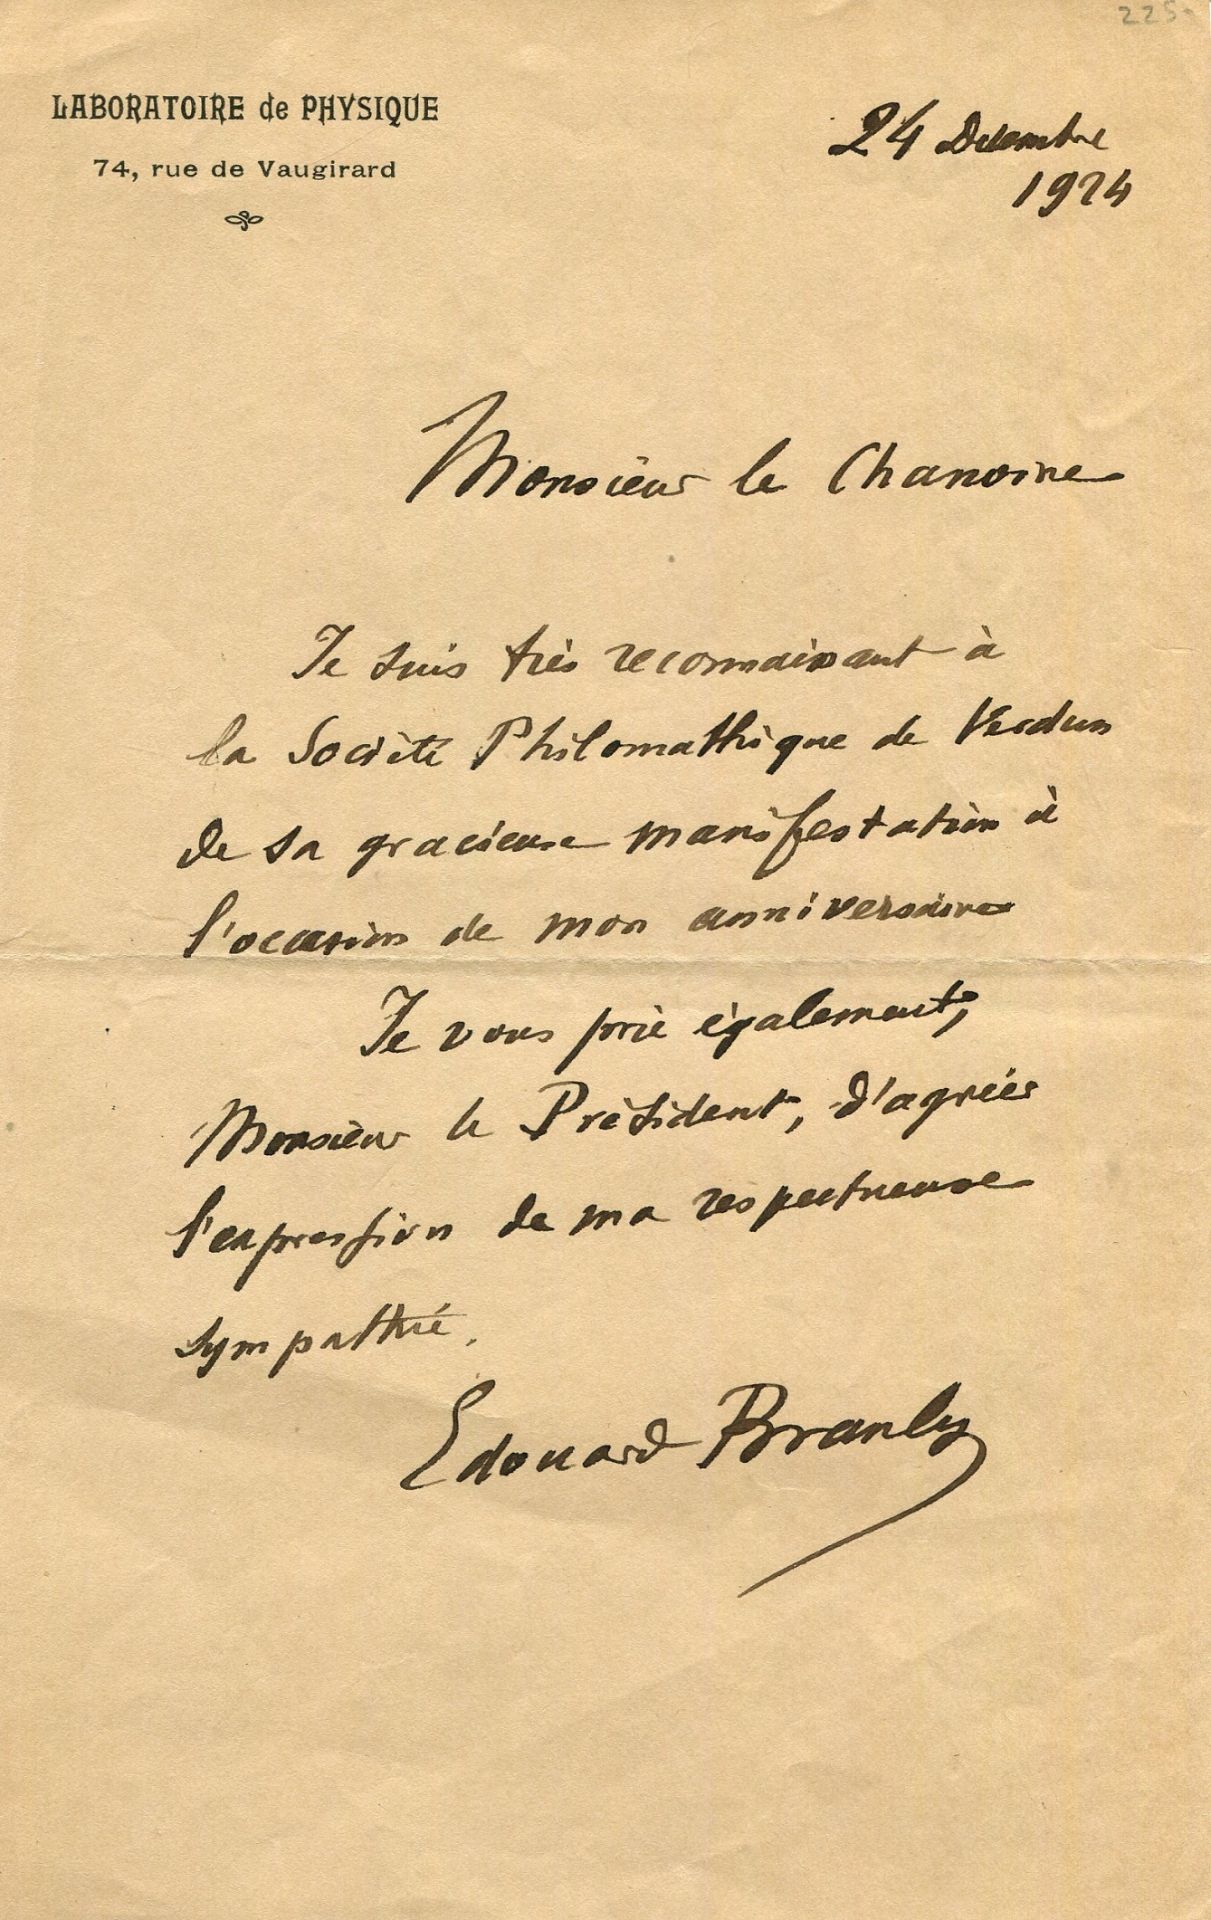 225-
LABORATOIRE de PHYSIQUE
74, rue de Vaugirard
24 Décembre
1924
Monsieur le Chanoine
Je suis très reconnaissant à
la Société Philomathique de Verdun
de sa gracieuse manifestation à
l'occasion de mon anniversaire
Je vous prie également,
Monsieur le Président, d'agréer
l'expression de ma respectueuse
sympathie.
Edouard Branly